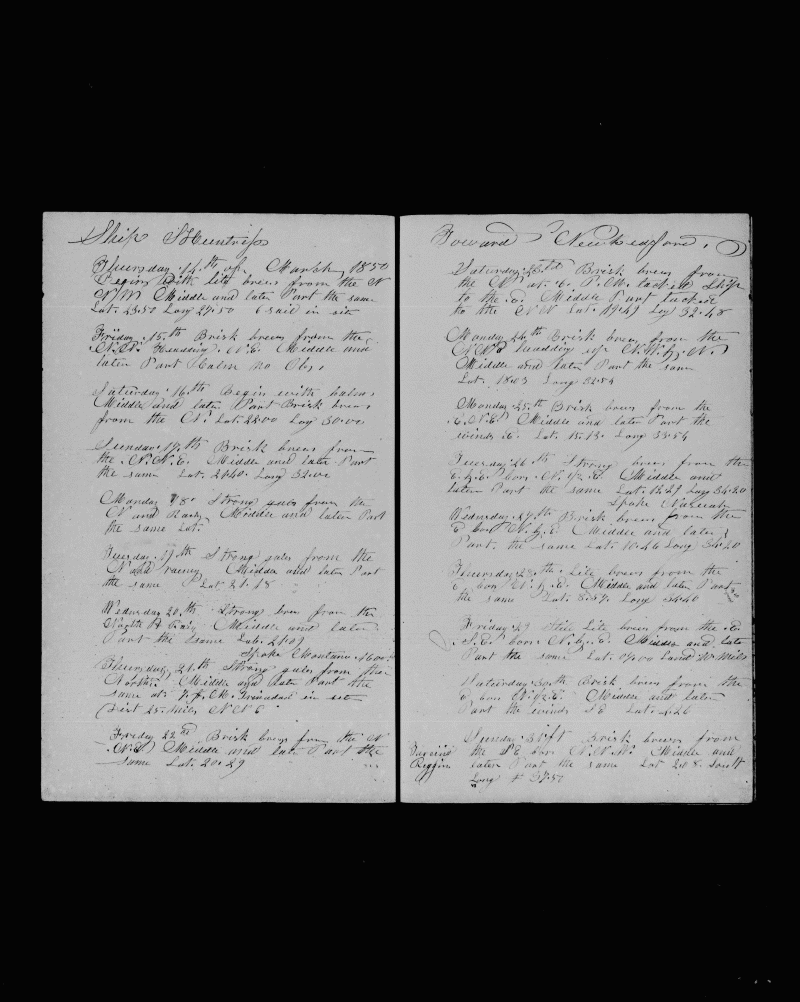 Ship Huntress
Thursday 14th of March 1850
Begins with lite brees from the N
N W Middle and later Part the same
Lat. 23.50 Long 29.50 6 sail in sit
Friday 15.th Brisk brees from the
N.N. Headding N.E. Middle and
later Part Calm no Obs,
Saturday 16.th Begin with calms
Middle and later Part Brisk brees
from the Lat. 22.00 Long 30.00
Sunday 17.th Brisk brees from
the N.N.E. Middle and later Part
the same Lat. Long 32.00
Monday 18. Strong gales from the
N and Middle and later Part
the same Lat.
Tuesday 19th Strong gales from the
N and rainy Middle and later Part
the same Lat 21.18
Wednsday 20.th Strong brees from the
North & Rainy Middle and later
Part the same Lat. 21.09
Spoke Montano
Thursday 21.th Strong gales from the
North. Middle and later Part the
same at P.M. Trinadad in sit
Dist 25 Miles N N E
Friday 22nd Brisk brees from the N
N.E. Middle and later Part the
same Lat. 20.29
Toward Newbedford.
Saturday 23rd Brisk brees from
the N at 6. P.M. tacked Ship
to the Middle Part tacked
to the N W Lat. 19.49 Long 32.48
Monday 24.th Brisk brees from the
headding up N.W.by.N.
Middle and later Part the same
Lat. 18.03 Long
Monday 25.th Brisk brees from the
E.N.E. Middle and later Part the
winds E. Lat. 15.13. Long 33.54
Tuesday 26.th Strong brees from the
E.by.E. bore N. Middle and
later Part the same Lat. 12.29 Long 34.20
Spoke
Wednsday 27th Brisk brees from the
E bore N.by.E. Middle and later
Part. the same Lat. 10.46 Long 34.20
Thursday 28.th Lite brees from the
E. bore N.by.E. Middle and later Part
the same Lat. 8.57. Long 34.40
Friday 29 Still Lite brees from the E.
S.E. bore N.by.E. Middle and later
Part the same Lat. 07.00
Saturday 30th Brisk brees from the
E bore N.by.E. Middle and later
Part the winds S E Lat. 4.26
Sunday 31st Brisk brees from
the S.E. bore N.N.W. Middle and
later Part the same Lat 2.08. South
Long 37.50